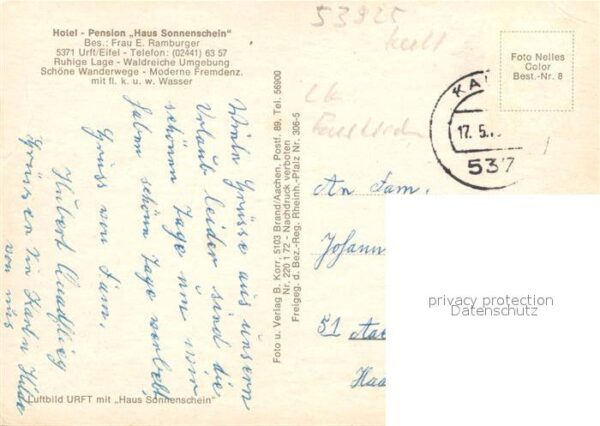 Hotel - Pension „Haus Sonnenschein"
Bes.: Frau E. Ramburger
5371 Urft/Eifel - Telefon: (02441) 63 57
Ruhige Lage - Waldreiche Umgebung
Schöne Wanderwege - Moderne Fremdenz.
mit fl. k. u. w. Wasser
53925
Kall
Foto Nelles
Color
Best.-Nr. 8
KA
17. 5.
537
Viele Grüsse aus unserm
Urlaub leider sind die
schönen Tage um wir
haben schöne Tage verlebt
Gruss von Fam.
Hubert Quadflieg
Grüsse
von uns
Foto u. Verlag B. Korr, 5103 Brand/Aachen, Postf. 89, Tel. 56900
Nr. 220 1 72 - Nachdruck verboten
Freigeg. d. Bez.-Reg. Rheinh.-Pfalz Nr. 306-5
An Fam.
Johann
51 Aa
Haa
privacy protection
Datenschutz
Luftbild URFT mit „Haus Sonnenschein"